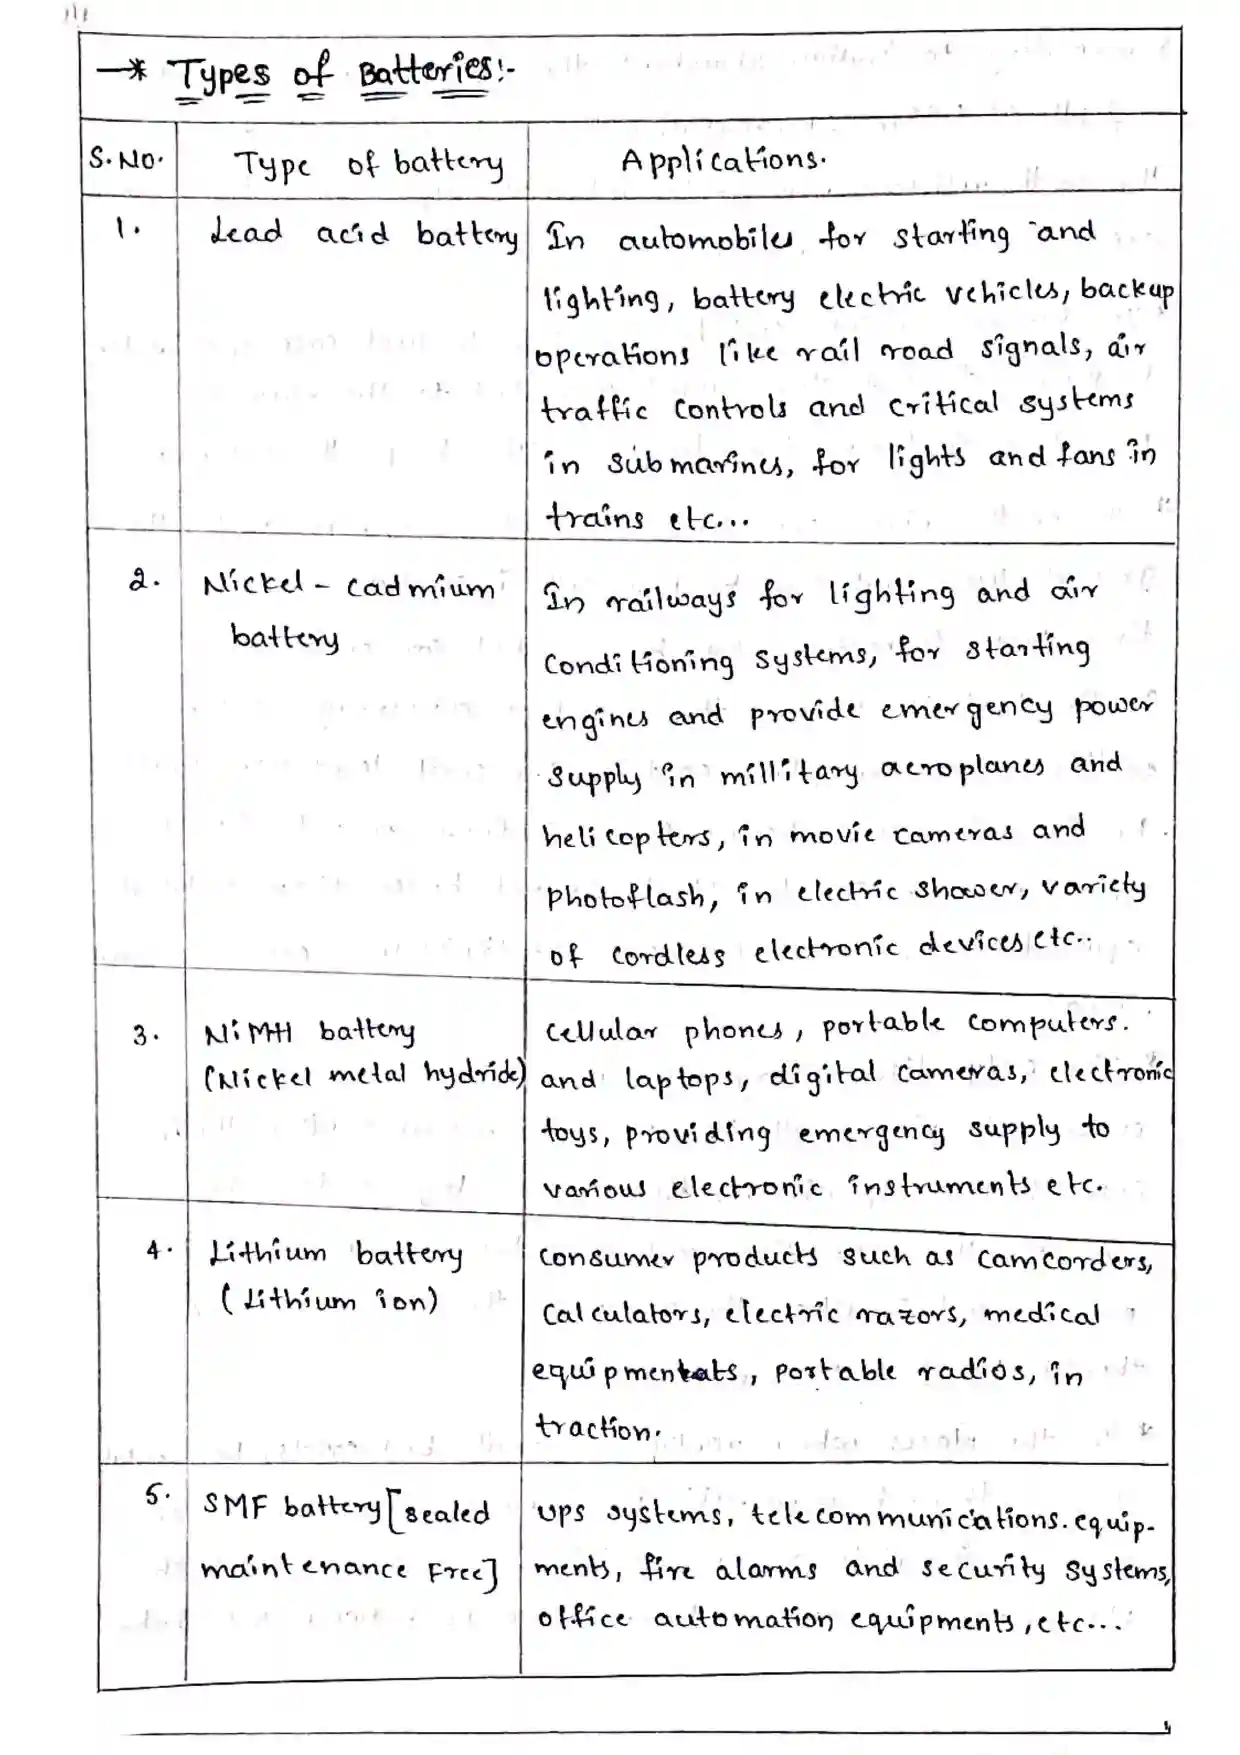 →* Types of Batteries:-
S.No. Type of battery Applications.
1. Lead acid battery In automobiles for starting and
lighting, battery electric vehicles, backup
operations like rail road signals, air
traffic controls and critical systems
in submarines, for lights and fans in
trains etc...
2. Nickel - cadmium In railways for lighting and air
battery
Conditioning systems, for starting
engines and provide emergency power
supply in millitary aeroplanes and
helicopters, in movie cameras and
photoflash, in electric shower, variety
of cordless electronic devices etc..
3. NiMH battery cellular phones, portable computers.
(Nickel metal hydride) and laptops, digital cameras, electronic
toys, providing emergency supply to
various electronic instruments etc.
4. Lithium battery consumer products such as camcorders,
(Lithium ion) calculators, electric razors, medical
equipmentats, portable radios, in
traction.
5. SMF battery [sealed ups systems, telecommunications. equip-
maintenance Free] ments, fire alarms and security systems,
office automation equipments, etc...